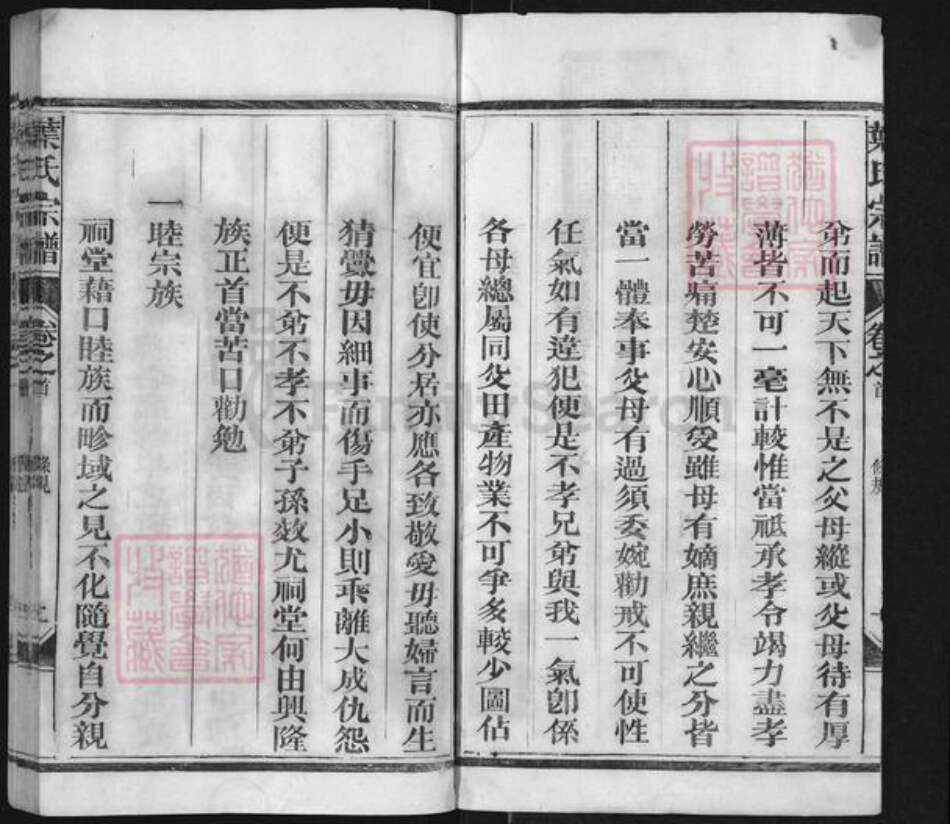 葉氏宗譜 卷之首
弟而起天下無不是之父母縱或父母待有厚
薄皆不可一毫計較惟當祗承孝令竭力盡孝
勞苦痛楚安心順受雖母有嫡庶親繼之分皆
當一體奉事父母有過須委婉勸戒不可使性
任氣如有違犯便是不孝兄弟與我一氣卽係
各母總屬同父田產物業不可爭多較少圖佔
便宜卽使分居亦應各致敬愛毋聽婦言而生
猜釁毋因細事而傷手足小則乖離大成仇怨
便是不弟不孝不弟子孫效尤祠堂何由興隆
族正首當苦口勸勉
一睦宗族
祠堂藉口睦族而畛域之見不化隨覺自分親
葉氏宗譜 卷之首 條規
FamilySearch